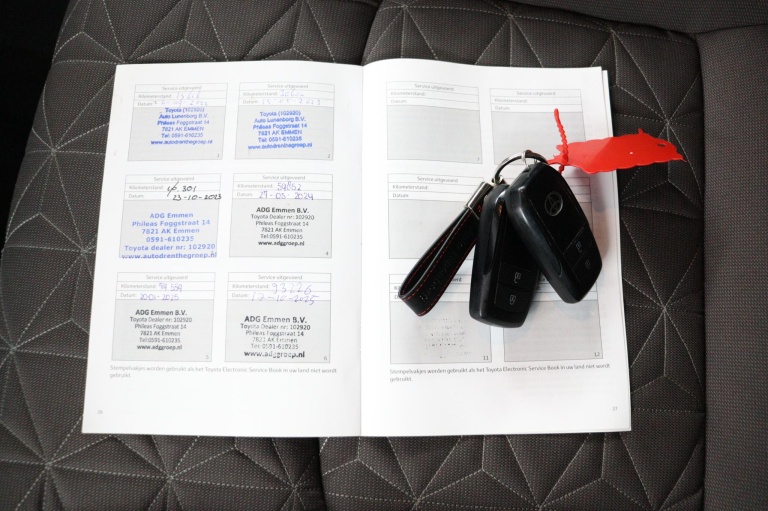 Service uitgevoerd
Kilometerstand:
Datum:
Toyota (102920)
Auto Lunenborg B.V.
Phileas Foggstraat 14
7821 AK EMMEN
Tel: 0591-610235
www.autodrenthegroep.nl
1
Service uitgevoerd
Kilometerstand:
Datum:
Toyota (102920)
Auto Lunenborg B.V.
Phileas Foggstraat 14
7821 AK EMMEN
Tel: 0591-610235
www.autodrenthegroep.nl
2
Service uitgevoerd
Kilometerstand: 40.301
Datum: 23-10-2023
ADG Emmen B.V.
Phileas Foggstraat 14
7821 AK Emmen
0591-610235
Toyota dealer nr: 102920
www.autodrenthegroep.nl
Service uitgevoerd
Kilometerstand:
Datum: 27-05-2024
ADG Emmen B.V.
Toyota Dealer nr: 102920
Phileas Foggstraat 14
7821 AK Emmen
Tel: 0591-610235
www.adggroep.nl
4
Service uitgevoerd
Kilometerstand:
Datum:
ADG Emmen B.V.
Toyota Dealer nr: 102920
Phileas Foggstraat 14
7821 AK Emmen
Tel: 0591-610235
www.adggroep.nl
5
Service uitgevoerd
Kilometerstand: 93226
Datum: 17-10-2025
ADG Emmen B.V.
Toyota Dealer nr: 102920
Phileas Foggstraat 14
7821 AK Emmen
Tel: 0591-610235
www.adggroep.nl
6
Stempelvakjes worden gebruikt als het Toyota Electronic Service Book in uw land niet wordt
gebruikt.
Service uitgevoerd
Kilometerstand:
Datum:
7
Service uitgevoerd
Kilometerstand:
Datum:
Service uitgevoerd
Kilometerstand:
Datum:
11
12
Stempelvakjes worden gebruikt als het Toyota Electronic Service Book in uw land niet wordt
gebruikt.